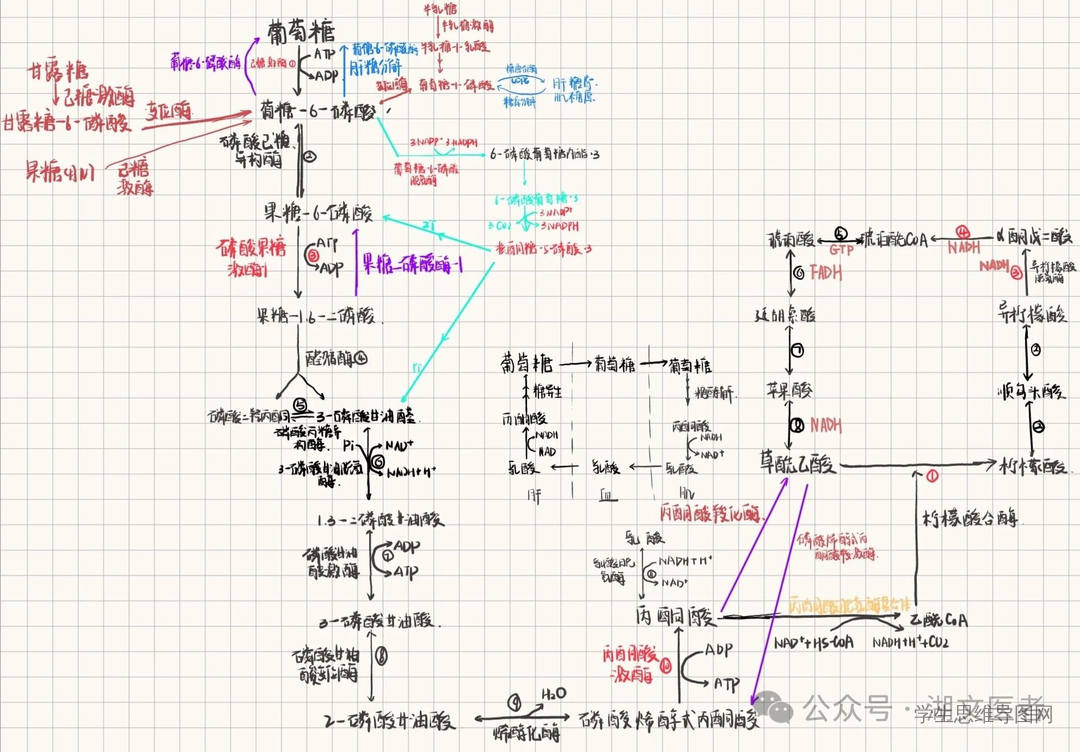 葡萄糖
ATP
ADP
己糖激酶①
葡糖-6-磷酸酶
葡糖-6-磷酸酶
肝糖分解
半乳糖
半乳糖激酶
半乳糖-1-
变位酶
葡萄糖-1-磷酸
UDPG
肝糖原
肌糖原
甘露糖
己糖激酶
甘露糖-6-磷酸
变位酶
葡糖-6-磷酸
果糖
己糖
激酶
磷酸己糖
异构酶
②
3NADP⁺
3NADPH
葡萄糖-6-磷酸
脱氢酶
6-磷酸葡萄糖内酯·3
6-磷酸葡萄糖·3
3CO2
3NADP⁺
3NADPH
-5-磷酸·3
果糖-6-磷酸
磷酸果糖
激酶1
③
ATP
ADP
果糖二磷酸酶-1
果糖-1.6-二磷酸
醛缩酶④
⑤
磷酸二羟丙酮
3-磷酸甘油醛
磷酸丙糖异
构酶
Pi
NAD⁺
⑥
NADH+H⁺
3-磷酸甘油醛脱氢
酶
1.3-二磷酸甘油酸
磷酸甘油
酸激酶
⑦
ADP
ATP
3-磷酸甘油酸
磷酸甘油
酸变位酶
⑧
2-磷酸甘油酸
⑨
H2O
烯醇化酶
磷酸烯醇式丙酮酸
丙酮酸
激酶
⑩
ADP
ATP
丙酮酸
乳酸
乳酸脱
氢酶
NADH+H⁺
NAD⁺
葡萄糖
葡萄糖
葡萄糖
糖异生
糖酵解
丙酮酸
NADH
NAD
丙酮酸
NADH
NAD⁺
乳酸
乳酸
乳酸
肝
血
肌
丙酮酸羧化酶
磷酸烯醇式丙
酮酸羧激酶
丙酮酸脱氢酶复合体
NAD⁺+HS-COA
NADH+H⁺+CO2
乙酰COA
柠檬酸合酶
①
草酰乙酸
柠檬酸
②
顺乌头酸
②
异柠檬酸
NADH③
异柠檬酸
脱氢酶
α酮戊二酸
④
NADH
琥珀酰COA
⑤
GTP
琥珀酸
⑥
FADH
延胡索酸
⑦
苹果酸
⑧
NADH
公众号·湖文医考
学生思维导图网